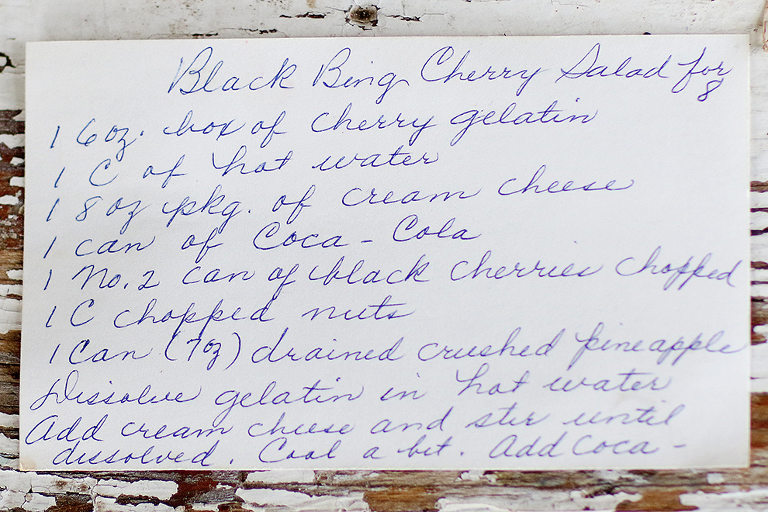 Black Bing Cherry Salad for 8
1 6oz. box of cherry gelatin
1 C of hot water
1 8 oz pkg. of cream cheese
1 can of Coca-Cola
1 No. 2 can of black cherries chopped
1 C chopped nuts
1 Can (7oz) drained crushed pineapple
Dissolve gelatin in hot water
Add cream cheese and stir until
dissolved. Cool a bit. Add Coca-